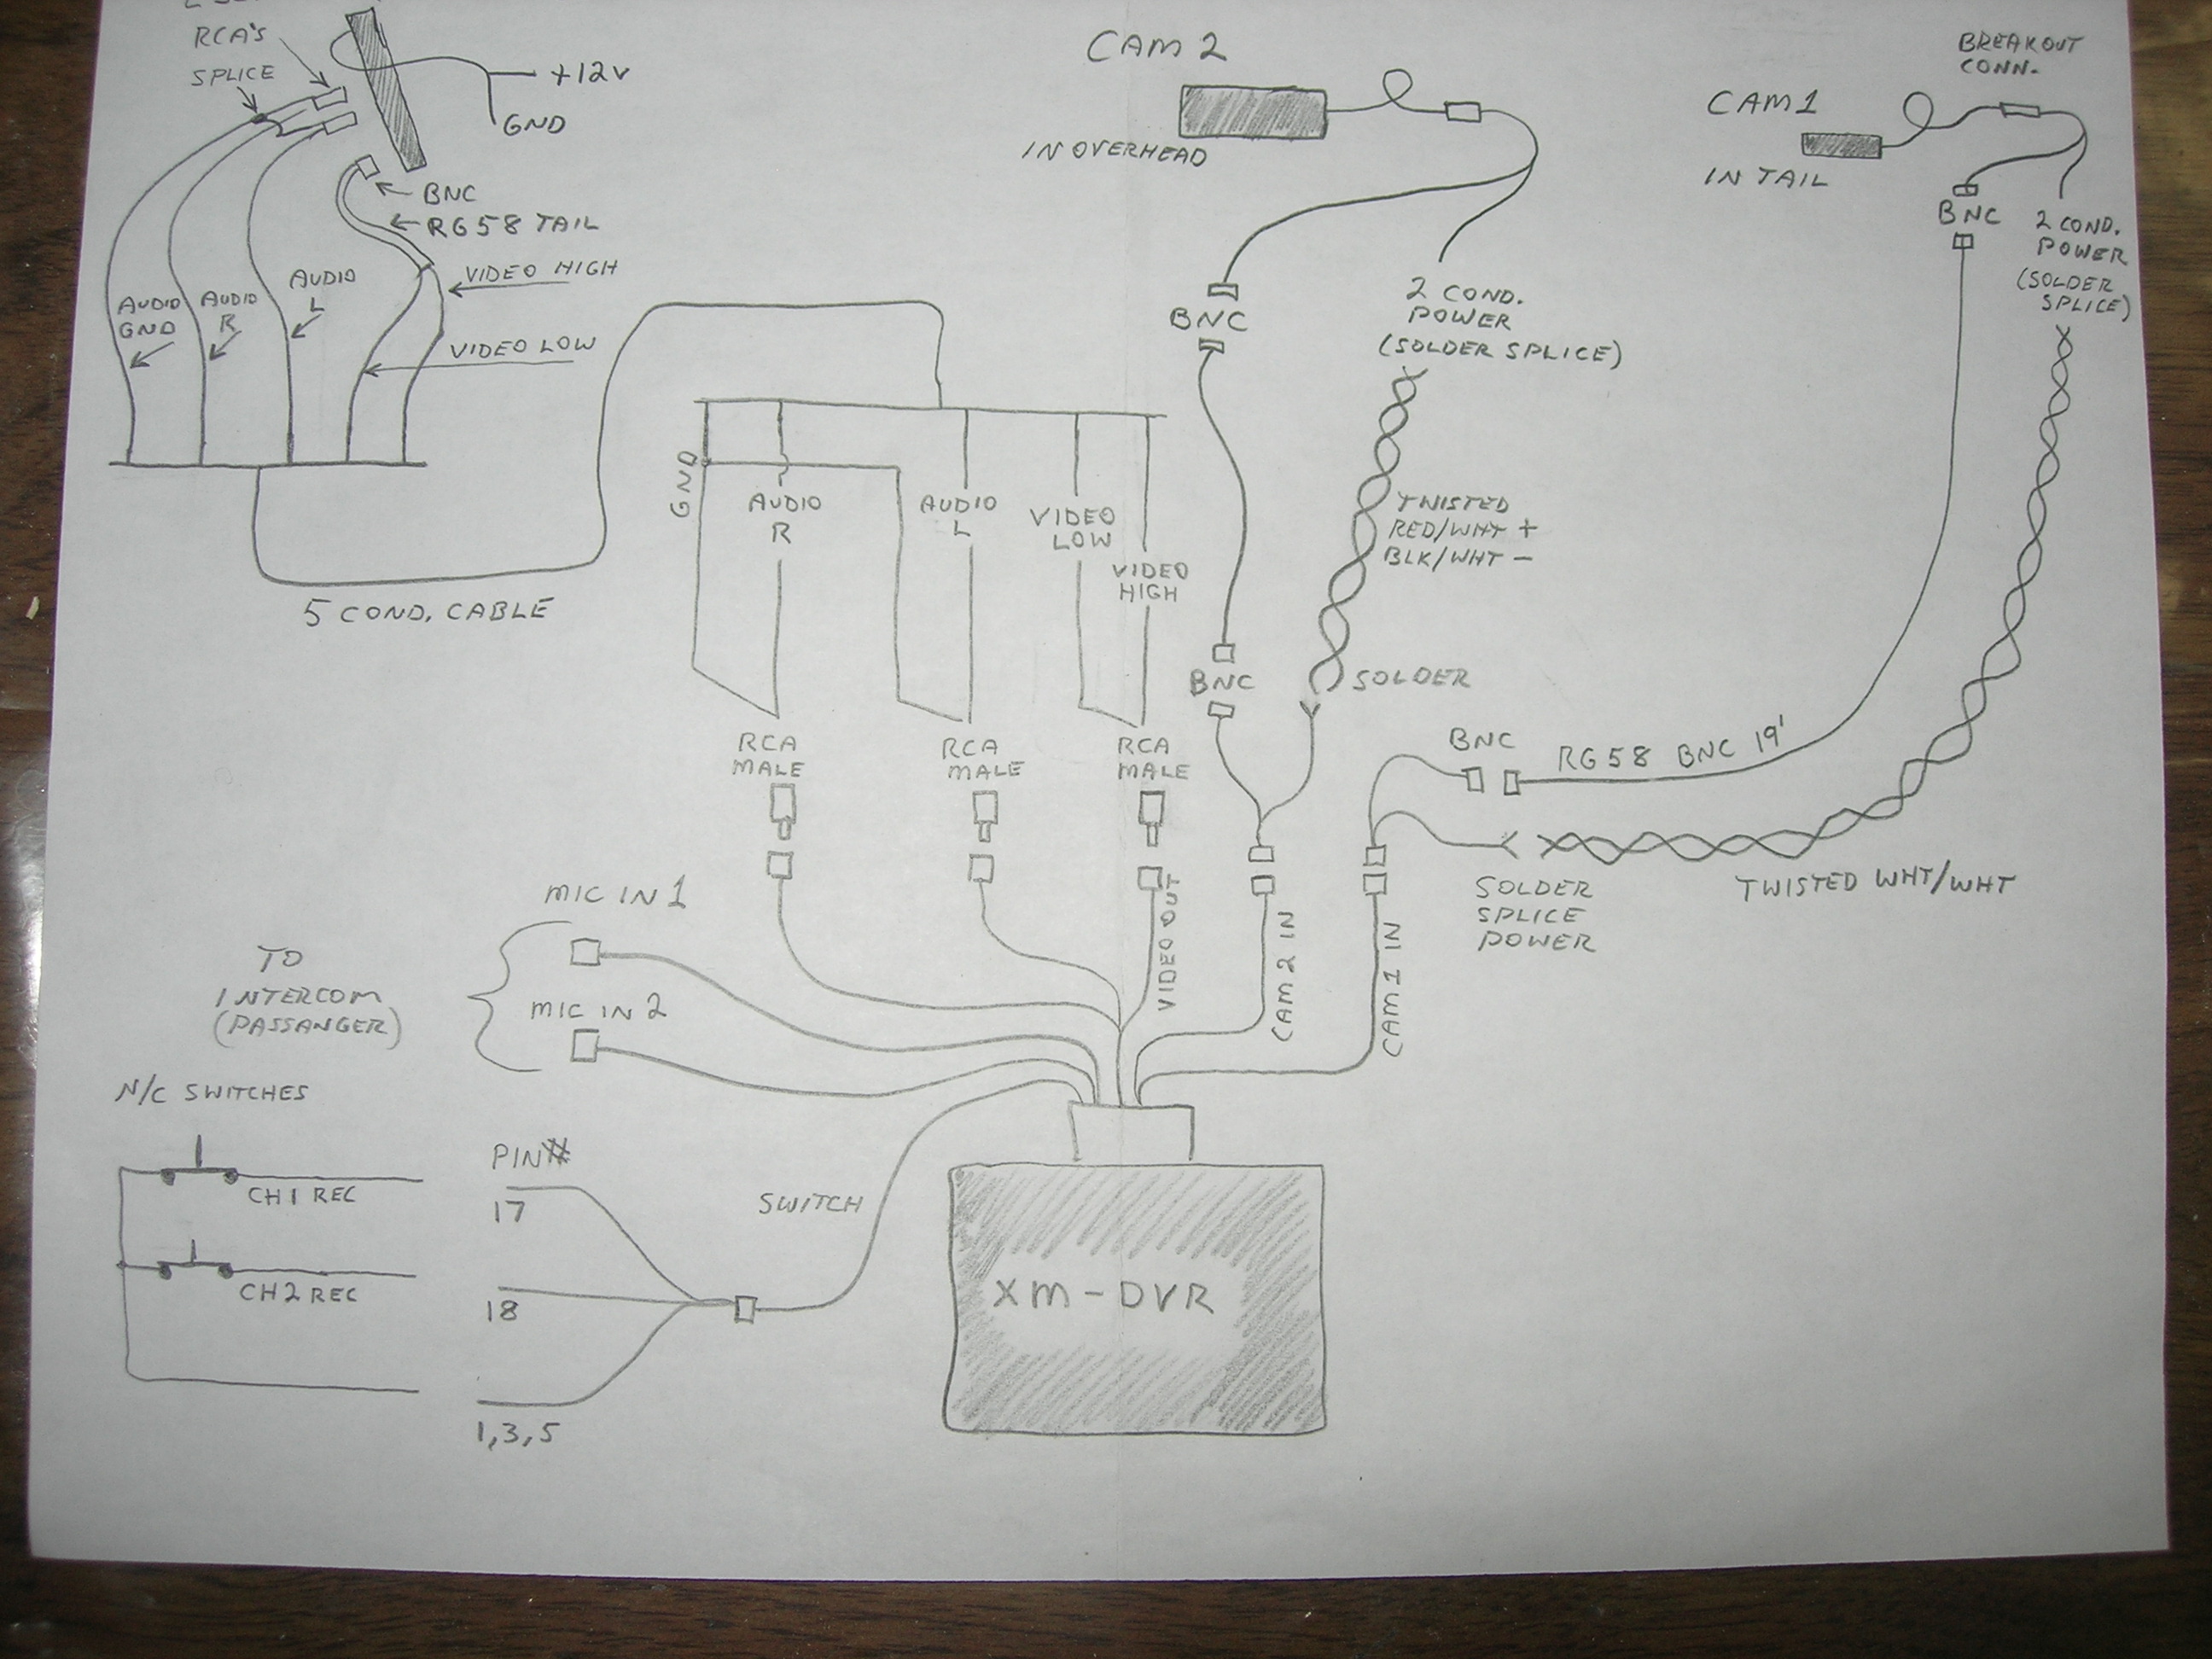 RCA'S
SPLICE
+12V
GND
BNC
RG58 TAIL
VIDEO HIGH
VIDEO LOW
AUDIO
GND
AUDIO
R
AUDIO
L
5 COND. CABLE
GND
AUDIO
R
AUDIO
L
VIDEO
LOW
VIDEO
HIGH
RCA
MALE
RCA
MALE
RCA
MALE
CAM 2
IN OVERHEAD
BNC
2 COND.
POWER
(SOLDER SPLICE)
TWISTED
RED/WHT +
BLK/WHT -
BNC
SOLDER
BREAKOUT
CONN.
CAM1
IN TAIL
BNC
2 COND.
POWER
(SOLDER
SPLICE)
BNC
RG58 BNC 19'
SOLDER
SPLICE
POWER
TWISTED WHT/WHT
VIDEO OUT
CAM 2 IN
CAM1 IN
MIC IN 1
MIC IN 2
TO
INTERCOM
(PASSANGER)
N/C SWITCHES
CH1 REC
CH2 REC
PIN#
17
18
1,3,5
SWITCH
XM-DVR